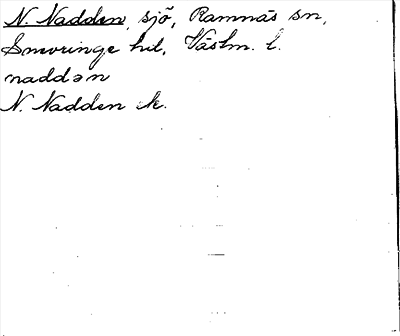 N. Nadden, sjö, Ramnäs sn,
Snevringe hd, Västm. l.
naddən
N. Nadden ek.